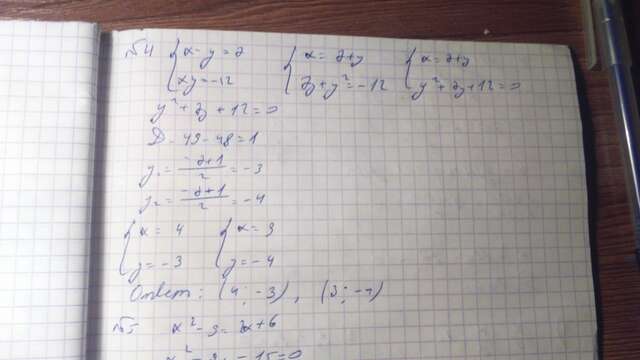 №4 { x - y = 7 { x = 7+y { x = 7+y
{ xy = -12 { 7y + y² = -12 { y² + 7y + 12 = 0
y² + 7y + 12 = 0
D - 49 - 48 = 1
y₁ = -7+1/2 = -3
y₂ = -7+1/2 = -4
{ x = 4 { x = 3
{ y = -3 { y = -4
Ответ: (4; -3), (3; -4)
№5 x² - 9 = 2x + 6
x² - 2x - 15 = 0